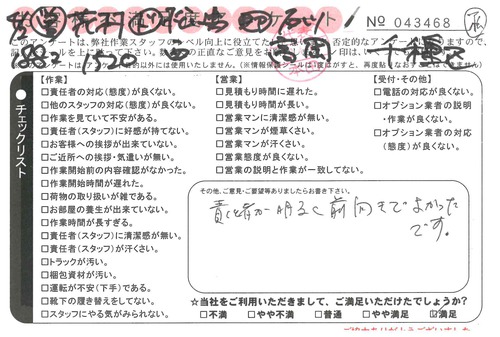 № 043468
このアンケートは、弊社作業スタッフのレベル向上に役立てたい
チェックリスト
【作業】
□責任者の対応(態度)が良くない。
□他のスタッフの対応(態度)が良くない。
□作業を見ていて不安がある。
□責任者(スタッフ)に好感が持てない。
□お客様への挨拶が出来ていない。
□ご近所への挨拶・気遣いが無い。
□作業開始前の内容確認がなかった。
□作業開始時間が遅れた。
□荷物の取り扱いが雑である。
□お部屋の養生が出来ていない。
□作業時間が長すぎる。
□責任者(スタッフ)に清潔感が無い。
□責任者(スタッフ)が汗くさい。
□トラックが汚い。
□梱包資材が汚い。
□運転が不安(下手)である。
□靴下の履き替えをしてない。
□スタッフにやる気がみられない。
【営業】
□見積もり時間に遅れた。
□見積もり時間が長い。
□営業マンに清潔感が無い。
□営業マンが煙草くさい。
□営業マンが汗くさい。
□営業態度が良くない。
□営業の説明と作業が一致してない。
【受付・その他】
□電話の対応が良くない。
□オプション業者の説明
・作業が良くない。
□オプション業者の対応
(態度)が良くない。
その他、ご意見・ご要望等ありましたらお書き下さい。
責任者が明るく前向きでよかった
です。
☆当社をご利用いただきまして、ご満足いただけたでしょうか?
□不満 □やや不満 □普通 □やや満足 ☑満足